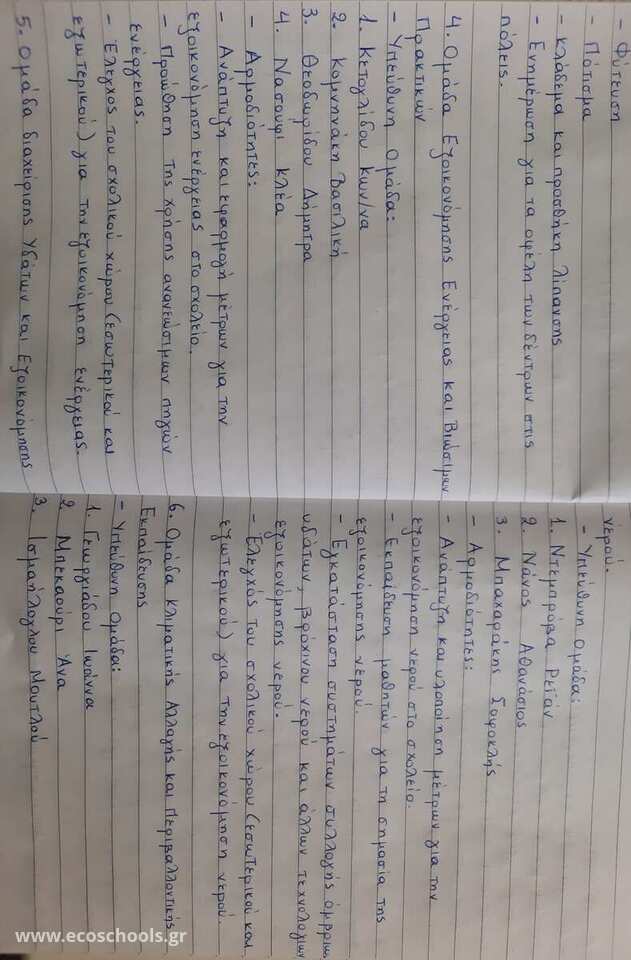 - Φύτευση
- Πότισμα
- Κλάδεμα και προσθήκη λίπανσης
- Ενημέρωση για τα οφέλη των δέντρων στις
πόλεις.
4. Ομάδα Εξοικονόμησης Ενέργειας και Βιώσιμων
Πρακτικών
- Υπεύθυνη Ομάδα:
1. Κετσελίδου Κων/να
2. Κομνηνάκη Βασιλική
3. Θεοδωρίδου Δήμητρα
4. Νασουφι Κλέα
- Αρμοδιότητες:
- Ανάπτυξη και εφαρμογή μέτρων για την
εξοικονόμηση ενέργειας στο σχολείο.
- Προώθηση της χρήσης ανανεώσιμων πηγών
ενέργειας.
- Έλεγχος του σχολικού χώρου (εσωτερικού και
εξωτερικού) για την εξοικονόμηση ενέργειας.
5. Ομάδα διαχείρισης Υδάτων και Εξοικονόμησης
νερού.
- Υπεύθυνη Ομάδα:
1. Ντεμπρόβα Ρεϊάν
2. Νάνος Αθανάσιος
3. Μπαχαράκης Σοφοκλής
- Αρμοδιότητες:
- Ανάπτυξη και υλοποίηση μέτρων για την
εξοικονόμηση νερού στο σχολείο.
- Εκπαίδευση μαθητών για τη σημασία της
εξοικονόμησης νερού.
- Εγκατάσταση συστημάτων συλλογής όμβριων
υδάτων, βρόχινου νερού και άλλων τεχνολογιών
εξοικονόμησης νερού.
- Έλεγχος του σχολικού χώρου (εσωτερικού και
εξωτερικού) για την εξοικονόμηση νερού.
6. Ομάδα Κλιματικής Αλλαγής και Περιβαλλοντικής
Εκπαίδευσης
- Υπεύθυνη Ομάδα:
1. Γεωργιάδου Ιωάννα
2. Μπεκαουρι Άνα
3. Ισμαήλογλου Μουτλού
www.ecoschools.gr